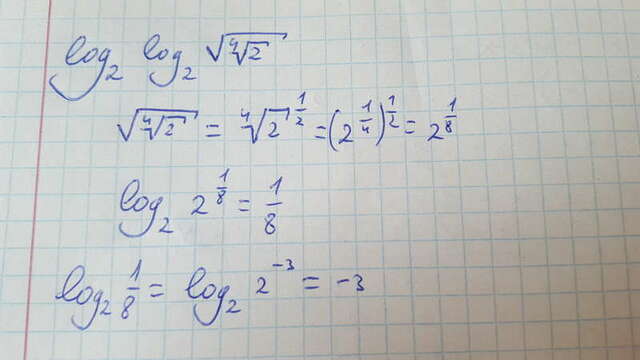 log₂ log₂ √(⁴√2)
√(⁴√2) = ⁴√2^(1/2) = (2^(1/4))^(1/2) = 2^(1/8)
log₂ 2^(1/8) = 1/8
log₂ 1/8 = log₂ 2^(-3) = -3